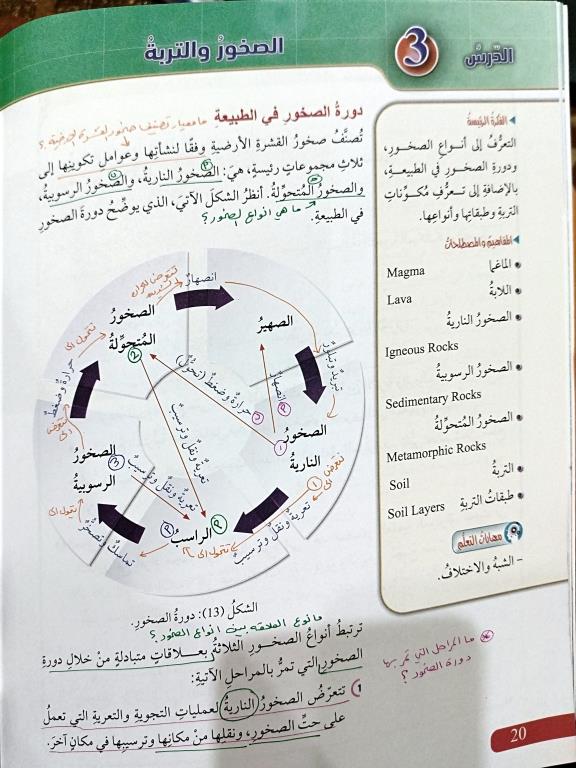 الدّرسُ 3 الصخورُ والتربةُ
◀ الفكرةُ الرئيسةُ
التعرُّفُ إلى أنـواعِ الصخـورِ،
ودورةِ الصخورِ في الطبيعـةِ،
بالإضافةِ إلى تعـرُّفِ مُكوِّناتِ
التربةِ وطبقاتِها وأنواعِها.
◀ المفاهيم والمصطلحات
• الماغما Magma
• اللابةُ Lava
• الصخورُ الناريةُ
Igneous Rocks
• الصخورُ الرسوبيةُ
Sedimentary Rocks
• الصخورُ المتحوِّلةُ
Metamorphic Rocks
• التربةُ Soil
• طبقاتُ التربةِ Soil Layers
مهاراتُ التعلُّمِ
- الشبهُ والاختلافُ.
* ما المراحل التي تمر بها
دورة الصخور؟
دورةُ الصخورِ في الطبيعةِ
ما معيار تصنيف صخور القشرة الأرضية؟
تُصنَّفُ صخورُ القشرةِ الأرضيةِ وفقًا لنشأتِها وعواملِ تكوينِها إلى
ثلاثِ مجموعاتٍ رئيسةٍ، هيَ: الصخورُ الناريةُ، والصخورُ الرسوبيةُ،
والصخورُ المُتحوِّلةُ. أنظرُ الشكلَ الآتيَ، الذي يوضِّحُ دورةَ الصخورِ
في الطبيعةِ.
ما هي انواع الصخور؟
انصهارٌ
الصهيرُ
تبريدٌ وتبلورٌ
الصخورُ
الناريةُ
انصهارٌ
حرارةٌ وضغطٌ (تحوّلٌ)
تعريةٌ ونقلٌ وترسيبٌ
تتعرض الى
تتحول الى
الراسبُ
تماسكٌ وتصخّرٌ
تتحول الى
الصخورُ
الرسوبيةُ
تعريةٌ ونقلٌ وترسيبٌ
تتعرض الى
حرارةٌ وضغطٌ
تتحول الى
الصخورُ
المتحوِّلةُ
تعريةٌ ونقلٌ وترسيبٌ
الشكلُ (13): دورةُ الصخورِ.
ما نوع العلاقة بين انواع الصخور؟
ترتبطُ أنواعُ الصخـورِ الثلاثةُ بعـلاقاتٍ متبادلةٍ منْ خلالِ دورةِ
الصخورِ التي تمرُّ بالمراحلِ الآتيةِ:
1 تتعرّضُ الصخورُ الناريةُ لعملياتِ التجويةِ والتعريةِ التي تعملُ
على حتِّ الصخورِ، ونقلِها منْ مكانِها وترسيبِها في مكانٍ آخرَ.
20